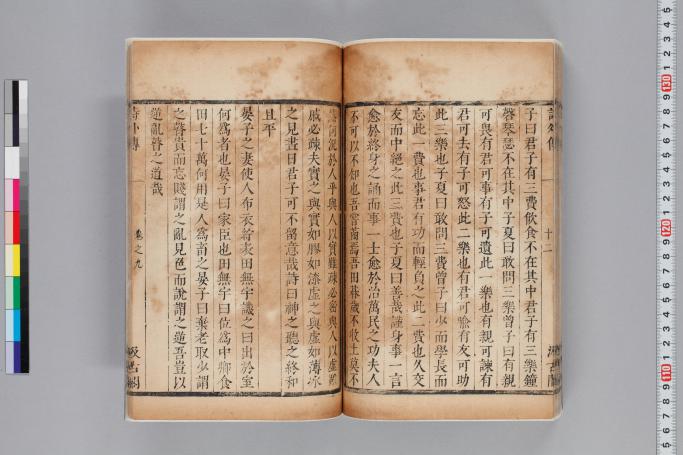 詩外傳 十二 汲古閣
子曰君子有三費飲食不在其中君子有三樂鐘
磬琴瑟不在其中子夏曰敢問三樂曾子曰有親
可畏有君可事有子可遺此一樂也有親可諫有
君可去有子可怒此二樂也有君可喻有友可助
此三樂也子夏曰敢問三費曾子曰少而學長而
忘此一費也事君有功而輕負之此二費也久交
友而中絕之此三費也子夏曰善哉謹身事一言
愈於終身之誦而事一士愈於治萬民之功夫人
不可以不知也吾嘗蔨焉吾田朞歲不收土莫不
然何況於人乎與人以實雖疎必密與人以虛雖
戚必疎夫實之與實如膠如漆虛之與虛如薄冰
之見晝日君子可不留意哉詩曰神之聽之終和
且平
晏子之妻使人布衣紵表田無宇譏之曰出於室
何為者也晏子曰家臣也田無宇曰位為中卿食
田七十萬何用是人為畜之晏子曰棄老取少謂
之瞽貴而忘賤謂之亂見色而說謂之逆吾豈以
逆亂瞽之道哉
詩外傳 卷之九 汲古閣
130
120
110